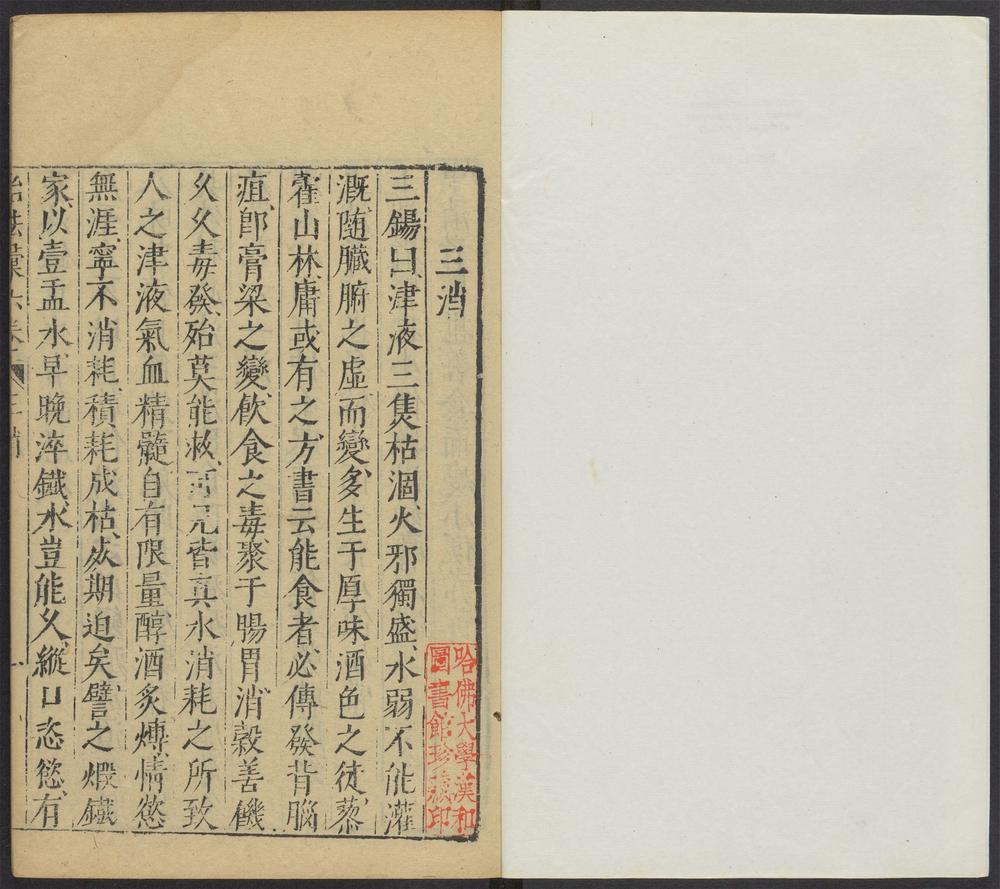 三消
三錫曰津液三焦枯涸火邪獨盛水弱不能灌
溉随臟腑之虛而變多生于厚味酒色之徒藜
藿山林庸或有之方書云能食者必傳發背腦
疽卽膏粱之變飲食之毒聚于腸胃消穀善饑
久久毒發殆莫能救可見皆真水消耗之所致
人之津液氣血精髓自有限量醇酒炙煿情慾
無涯寧不消耗積耗成枯死期迫矣譬之煅鐵
家以壹盂水早晚淬鐵水豈能久縱口恣慾有
治法彙六卷 三消 一
哈佛大學漢和
圖書館珍藏印